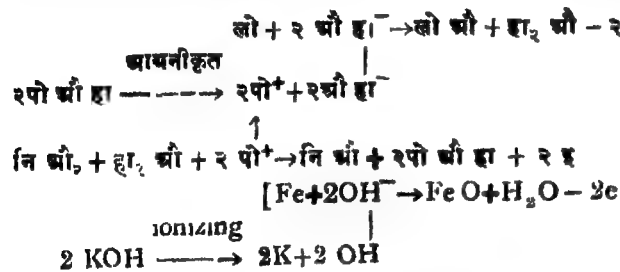 लो + २ औ हा⁻ → लो औ + हा₂ औ − २
आयनीकृत
२पो औ हा ———→ २पो⁺ + २औ हा⁻
नि औ₂ + हा₂ औ + २ पो⁺ → नि औ + २पो औ हा + २ इ
[Fe+2OH⁻ → FeO+H₂O − 2e
ionizing
2 KOH ———→ 2K+2 OH